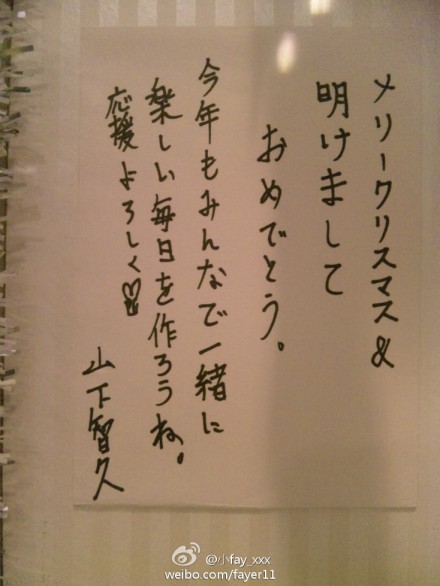 メリークリスマス&
明けまして
おめでとう。
今年もみんなで一緒に
楽しい毎日を作ろうね。
応援よろしく
山下智久
@小fay_xxx
weibo.com/fayer11